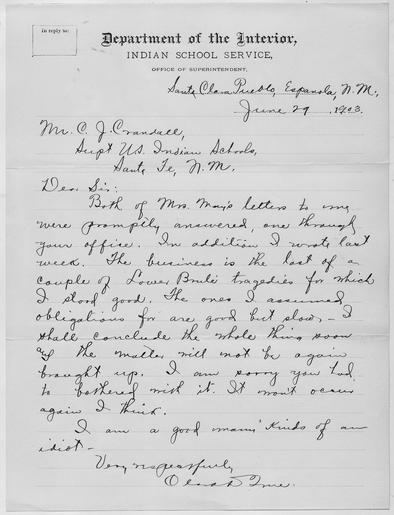 In reply to:
Department of the Interior,
INDIAN SCHOOL SERVICE,
OFFICE OF SUPERINTENDENT,
Santa Clara Pueblo, Espanola, N.M.,
June 29, 1903.
Mr. C. J. Crandall,
Supt U.S. Indian Schools,
Santa Fe, N.M.
Dear Sir:
Both of Mrs. May's letters to me
were promptly answered, one through
your office. In addition I wrote last
week. The business is the last of a
couple of Lower Brule tragedies for which
I stood good. The ones I assumed
obligations for are good but slow, - I
shall conclude the whole thing soon
& the matter will not be again
brought up. I am sorry you had
to bothered with it. It wont occur
again I think.
I am a good many kinds of an
idiot -
Very respectfully,